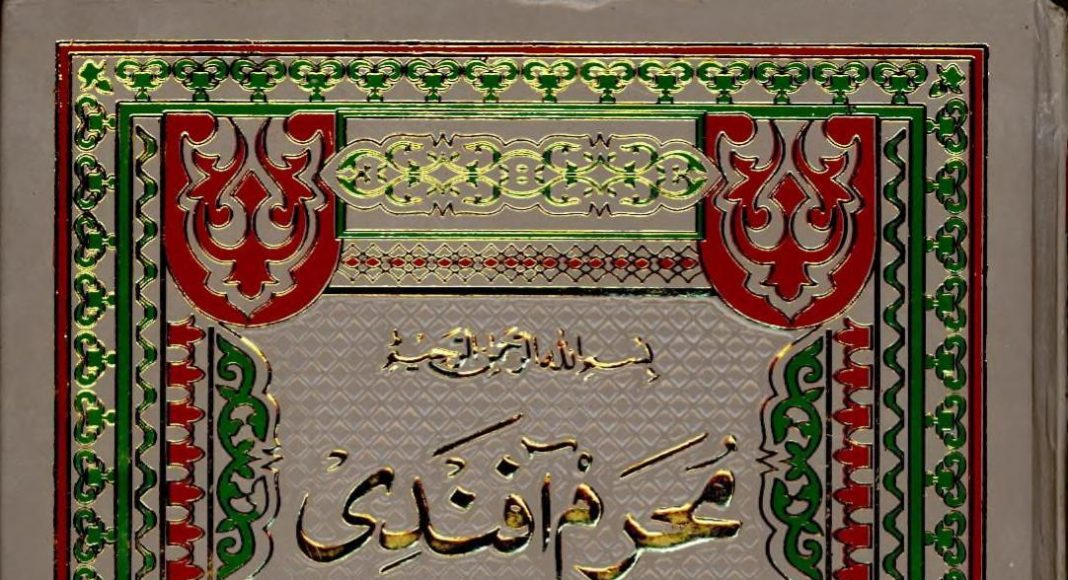 بسم الله الرحمن الرحيم
مُحَرَّمْ آفَنْدِى